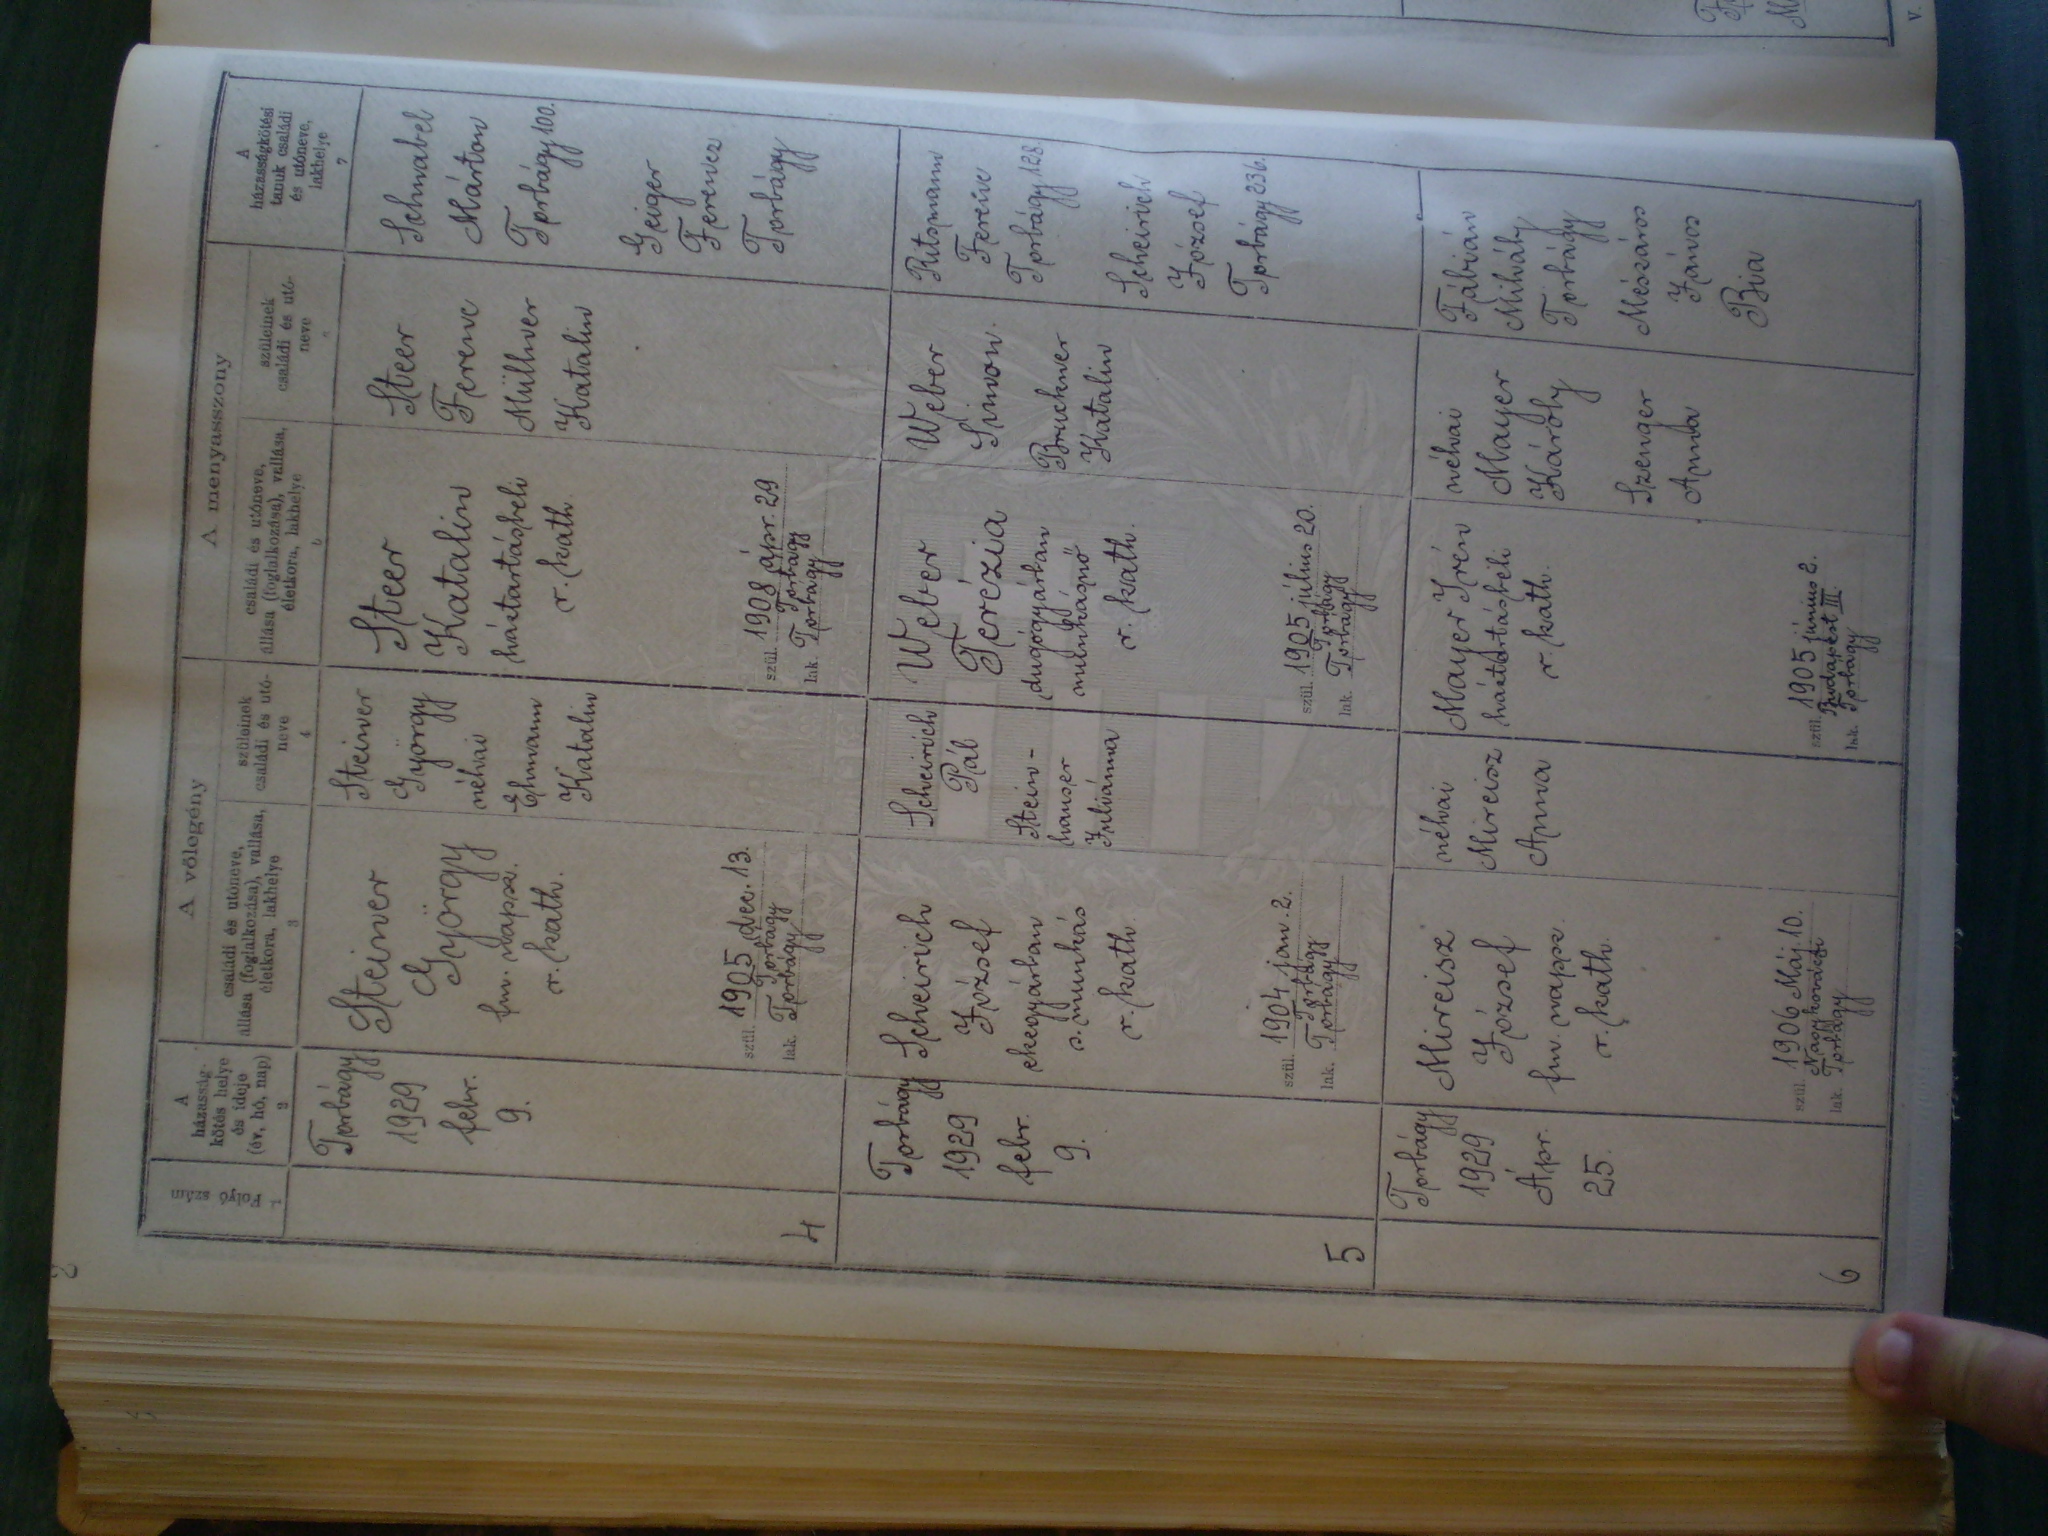 2
A
házasság-
kötés helye
és ideje
(év, hó, nap)
2
A vőlegény
családi és utóneve,
állása (foglalkozása), vallása,
életkora, lakhelye
3
szüleinek
családi és utó-
neve
4
A menyasszony
családi és utóneve,
állása (foglalkozása), vallása,
életkora, lakhelye
szüleinek
családi és utó-
neve
A
házasságkötési
tanuk családi
és utóneve,
lakhelye
7
Folyó
szám
1
4
Torbágy
1929
febr.
9.
Steiner
György
fm. napsz.
r. kath.
szül. 1905 dec. 13.
Torbágy
lak. Torbágy
Steiner
György
néhai
Ehmann
Katalin
Steer
Katalin
háztartásbeli
r. kath.
szül. 1908 ápr. 29
Torbágy
lak. Torbágy
Steer
Ferenc
Müllner
Katalin
Schnabel
Márton
Torbágy 100.
Geiger
Ferencz
Torbágy
5
Torbágy
1929
febr.
9.
Scheirich
József
ekegyárban
s. munkás
r. kath.
szül. 1904 jan. 2.
Torbágy
lak. Torbágy
Scheirich
Pál
Stein-
hauser
Juliánna
Weber
Terézia
dugógyárban
munkásnő
r. kath.
szül. 1905 július 20.
Torbágy
lak. Torbágy
Weber
Simon.
Bruckner
Katalin
Ritsmann
Ferenc
Torbágy 128.
Scheirich
József
Torbágy 236.
6
Torbágy
1929
Ápr.
25.
Mireisz
József
fm. napsz.
r. kath.
szül. 1906 Máj 10.
Nagykovácsi
lak. Torbágy
néhai
Mireisz
Anna
Mayer Irén
háztartásbeli
r. kath.
szül. 1905 június 2.
Budapest III.
lak. Torbágy
néhai
Mayer
Károly
Szenger
Anna
Fábián
Mihály
Torbágy
Mészáros
János
Bia
V.